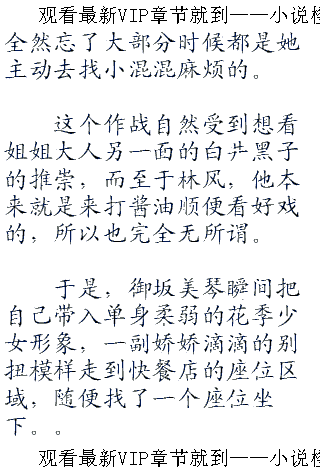 观看最新VIP章节就到——小说
全然忘了大部分时候都是她
主动去找小混混麻烦的。
这个作战自然受到想看
姐姐大人另一面的白井黑子
的推崇，而至于林风，他本
来就是来打酱油顺便看好戏
的，所以也完全无所谓。
于是，御坂美琴瞬间把
自己带入单身柔弱的花季少
女形象，一副娇娇滴滴的别
扭模样走到快餐店的座位区
域，随便找了一个座位坐
下。。
观看最新VIP章节就到——小说